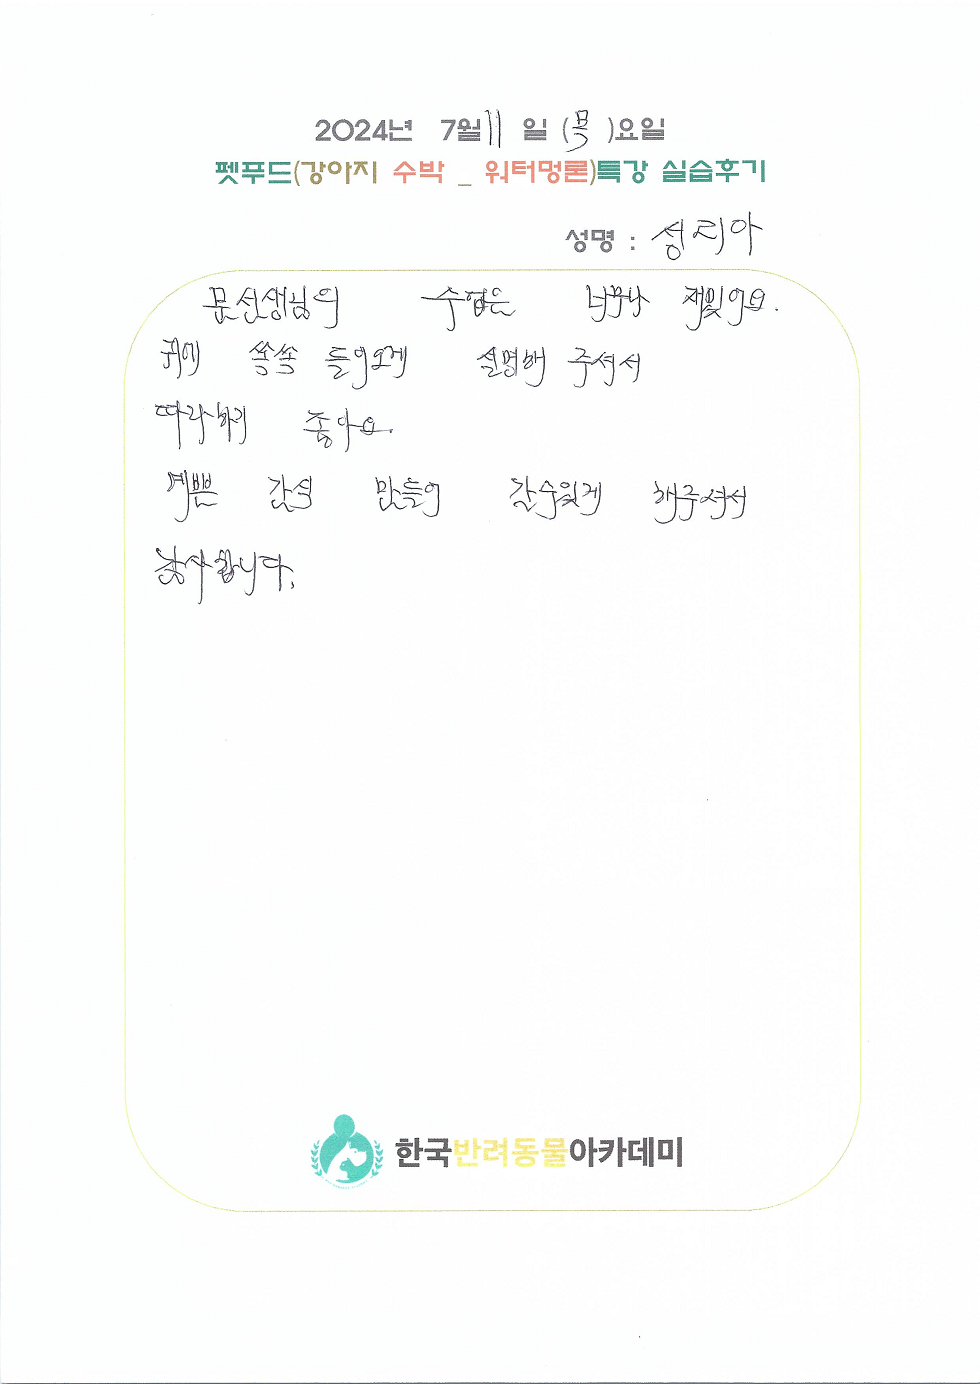 2024년 7월 11일 (목)요일
펫푸드(강아지 수박 _ 워터멍론)특강 실습후기
성명 : 성리아
문선생님의 수업은 너무나 재밌어요.
귀에 쏙쏙 들어오게 설명해 주셔서
따라하기 좋아요.
예쁜 간식 만들어 갈수있게 해주셔서
감사합니다.
한국반려동물아카데미